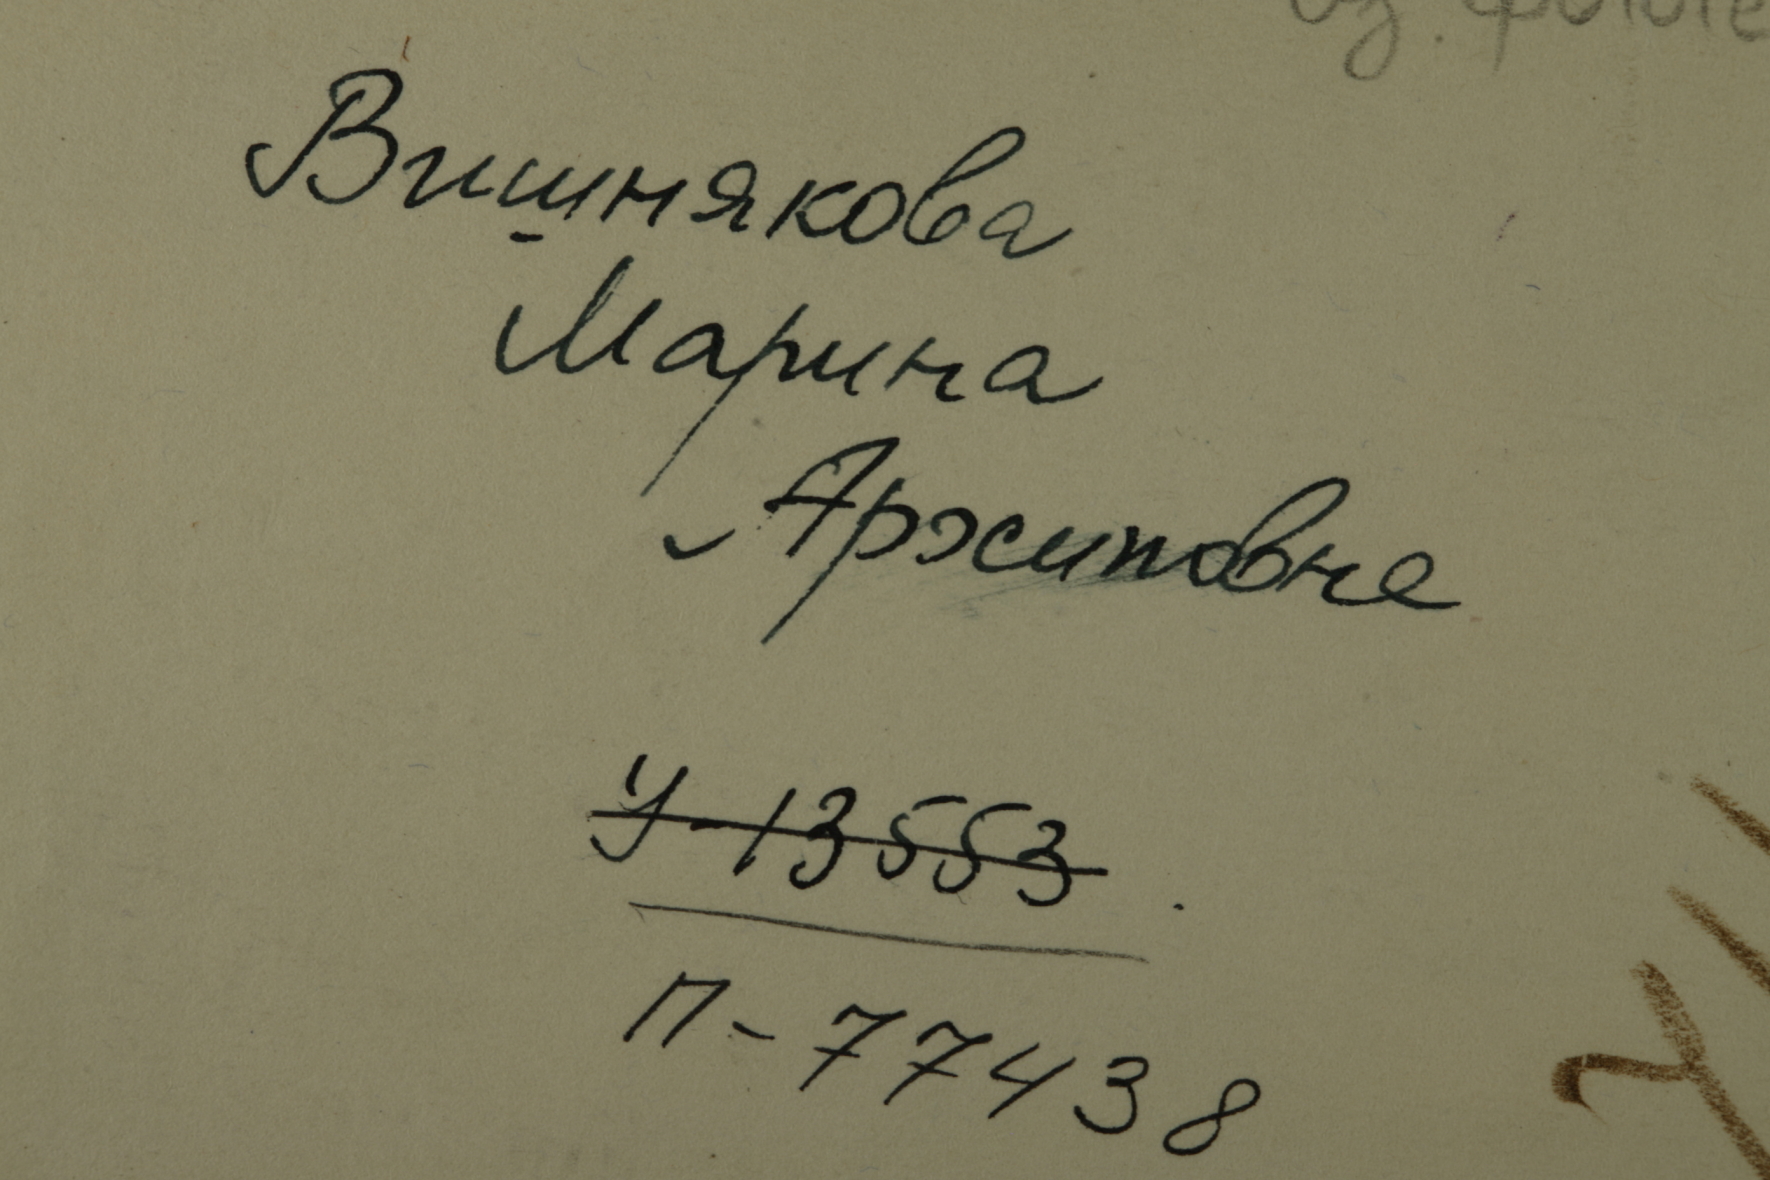 Вишнякова
Марина
Архиповна
У-13553
П-77438